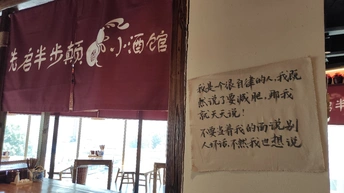 先启半步颠小酒馆
我是一个很自律的人，我既
然说了要减肥，那我
就天天说！
不要当着我的面说别
人坏话，不然我也想说